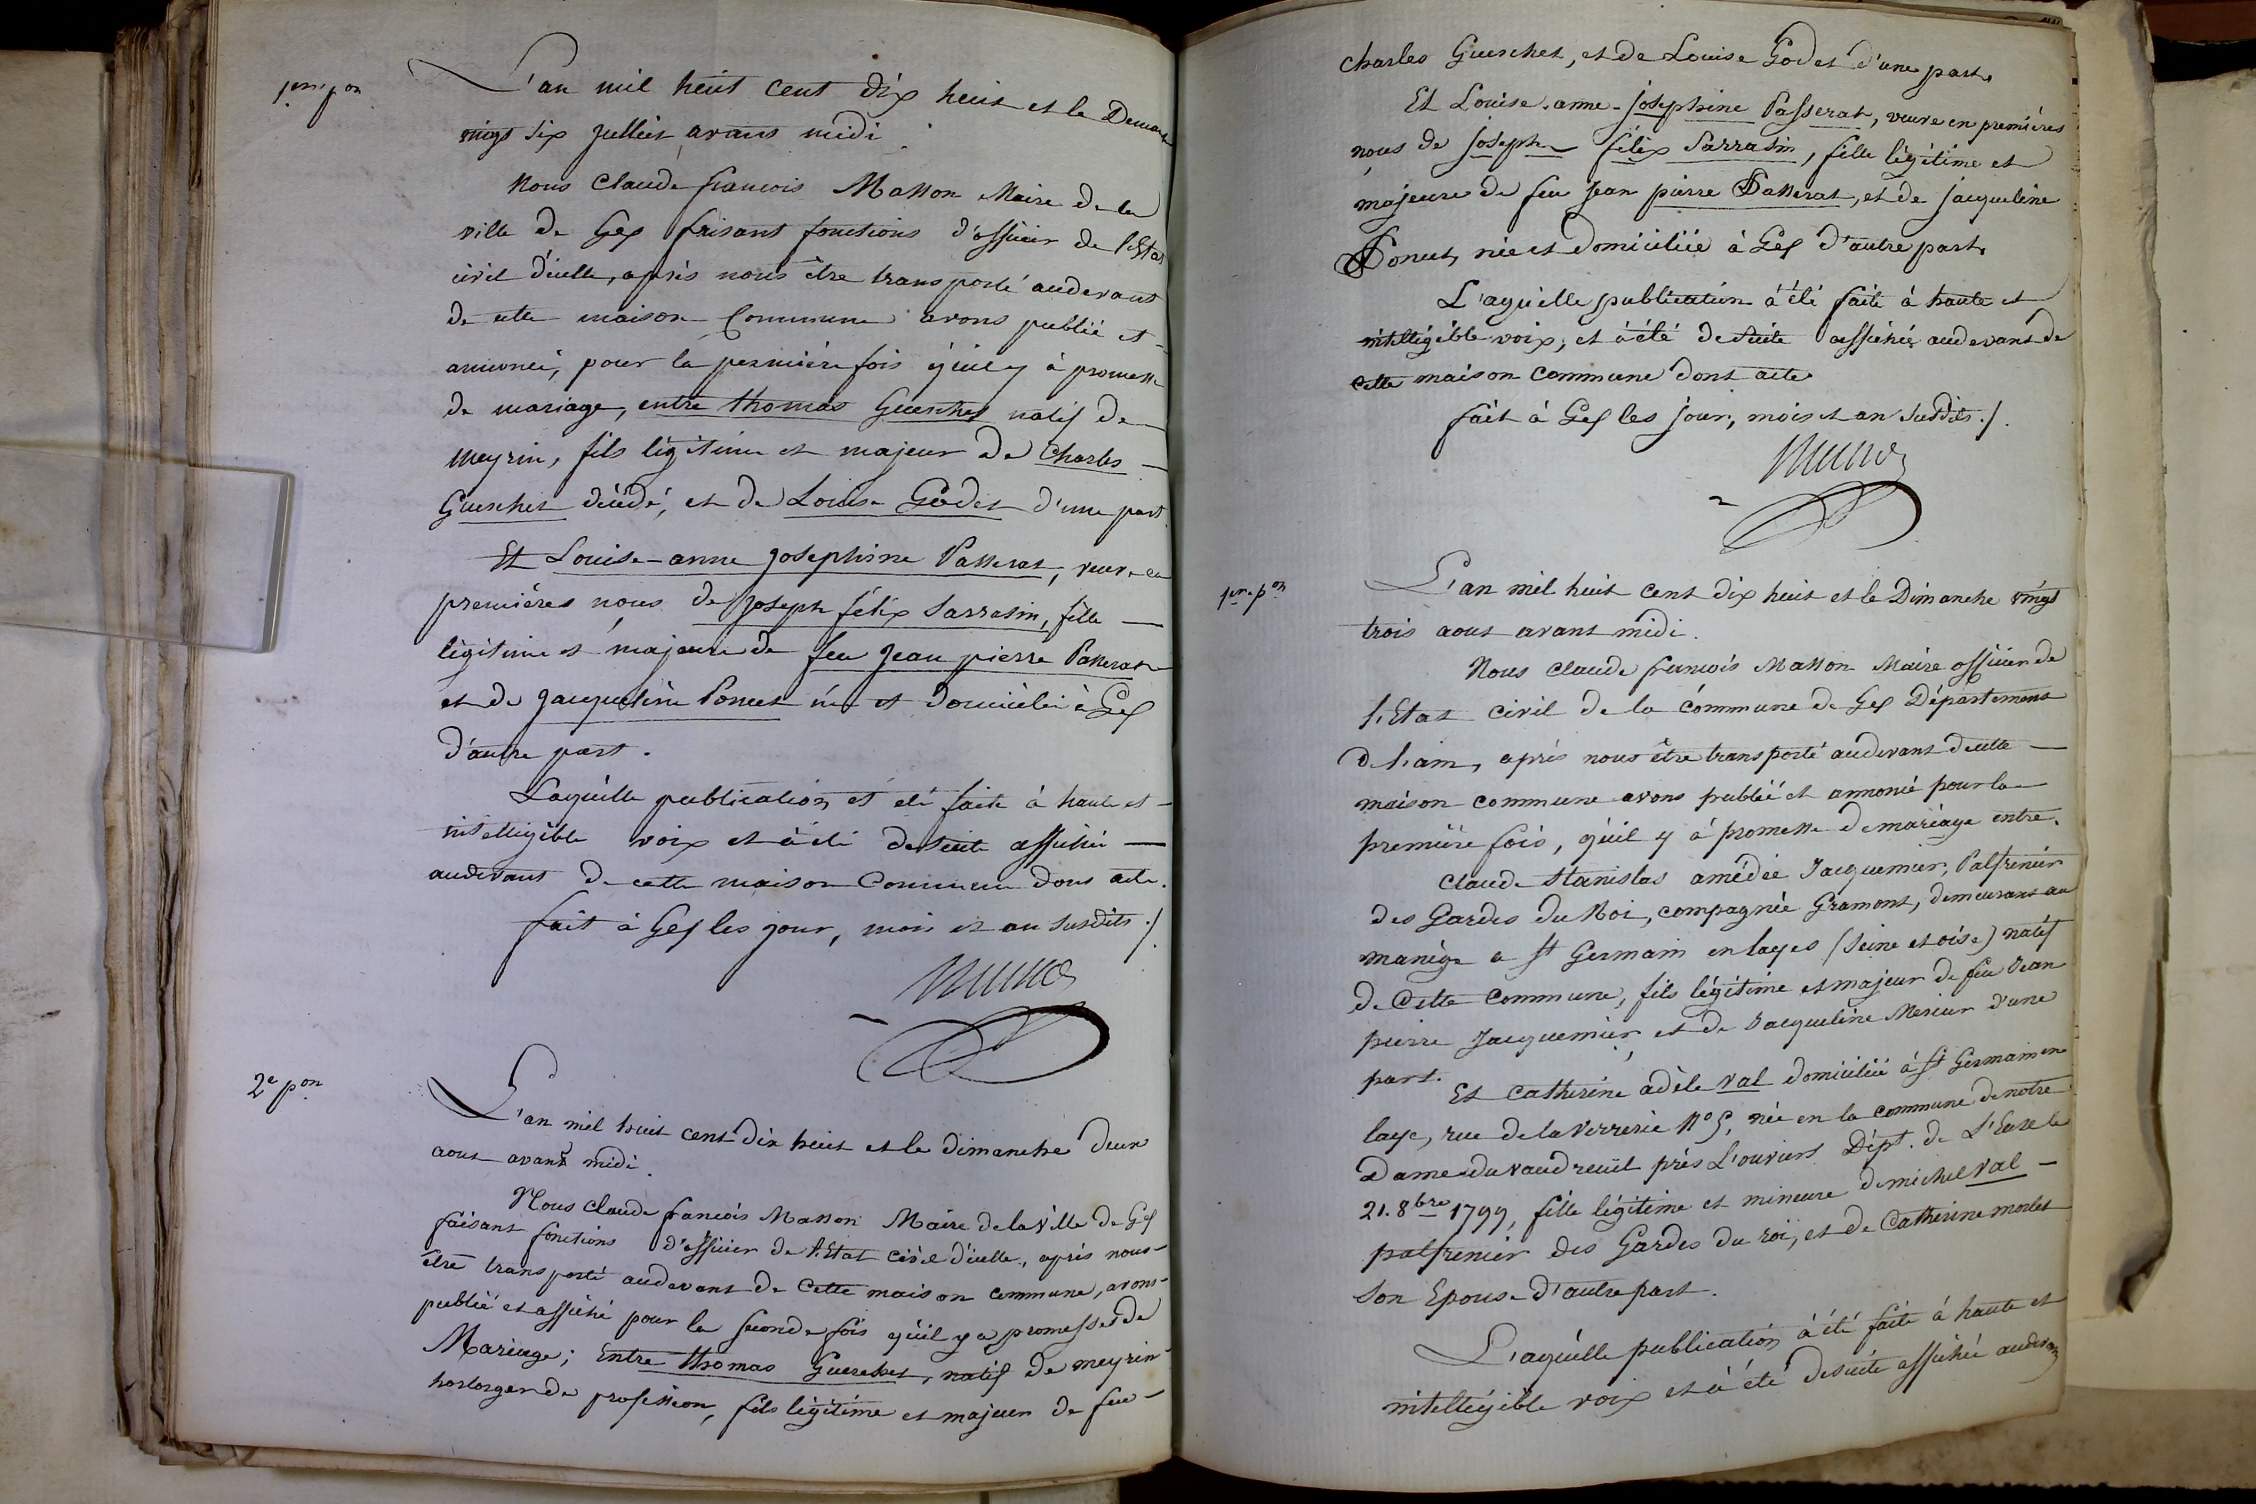 1ere pon
L'an mil heuit cent dix heuit et le Demanche
vingt six juillet avant midi.
Nous Claude francois Masson Maire de la
ville de Gex faisant fonctions d'officier de l'Etat
civil d'icelle, après nous être transporté audevant
de cette maison Commune avons publié et
annoncé, pour la permière fois q'uil y à promesse
de mariage, entre thomas Guerchet natif de
meyrin, fils légitime et majeur de Charles
Guerchet décédé, et de Louise Godet d'une part
Et Louise-anne Josephine Passerat, veuve en
premières nóus de Joseph félix Sarrasin, fille
légitime et majeure de feu Jean pierre Passerat
et de Jacqueline Poncet née et domiciliée à Gex
d'autre part.
Laquelle publication et été faite à haute et
intelligible voix et à été desuite affiché
audevant de cette maison Commune dont acte.
fait à Gex les jour, mois et an susdits ./.
2e pon
L'an mil huit cent dix heuit et le dimanche deux
aout avant midi.
Nous Claude francois Masson Maire de la ville de Gex
faisant fonctions d'officier de l'Etat civil d'icelle, après nous
être transporté audevant de cette maison commune, avons
publié et affiché pour la seconde fois q'uil y a promesses de
Mariage; Entre thomas Guerchet, natif de meyrin
horloger de profession, fils légitime et majeur de feu
charles Guerchet, et de Louise Godet d'une part,
Et Louise-anne-Josephine Passerat, veuve en premières
nóus de Joseph félix Sarrasin, fille légitime et
majeure de feu Jean pierre Passerat, et de jacqueline
Poncet, née et domiciliée à Gex d'autre part,
L'aquelle publication à été faite à haute et
intelligible voix, et à été desuite affichée audevant de
cette maison commune dont acte
fait à Gex les jour, mois et an susdits ./.
1ere pon
L'an mil huit cent dix huit et le Dimanche vingt
trois aout avant midi.
Nous Claude francois Masson Maire officier de
l'Etat civil de la commune de Gex Département
de l'ain, après nous être transporté audevant de cette
maison commune avons publié et annoncé pour la
première fois, q'uil y à promesse de mariage entre
Claude Stanislas amédée Jacquemier, Palfrenier
des Gardes du Roi, compagnie Gramont, demeurant au
manège a St Germain en layes (Seine et oise) natif
de Cette commune, fils légitime et majeur de feu Jean
pierre Jacquemier et de Jacqueline Mercier d'une
part.
Et Catherine adèle val domiciliée à St Germain en
laye, rue de la Verrerie No 5, née en la commune de notre
Dame du vaudreuil près L'ouviers Dépt. de L'Eure le
21. 8bre 1799, fille légitime et mineure de michel val
palfrenier des Gardes du roi, et de Catherine morlet
son Epouse d'autre part.
L'aquelle publication à été faite à haute et
intelligible voix et à été desuite affiché audevant